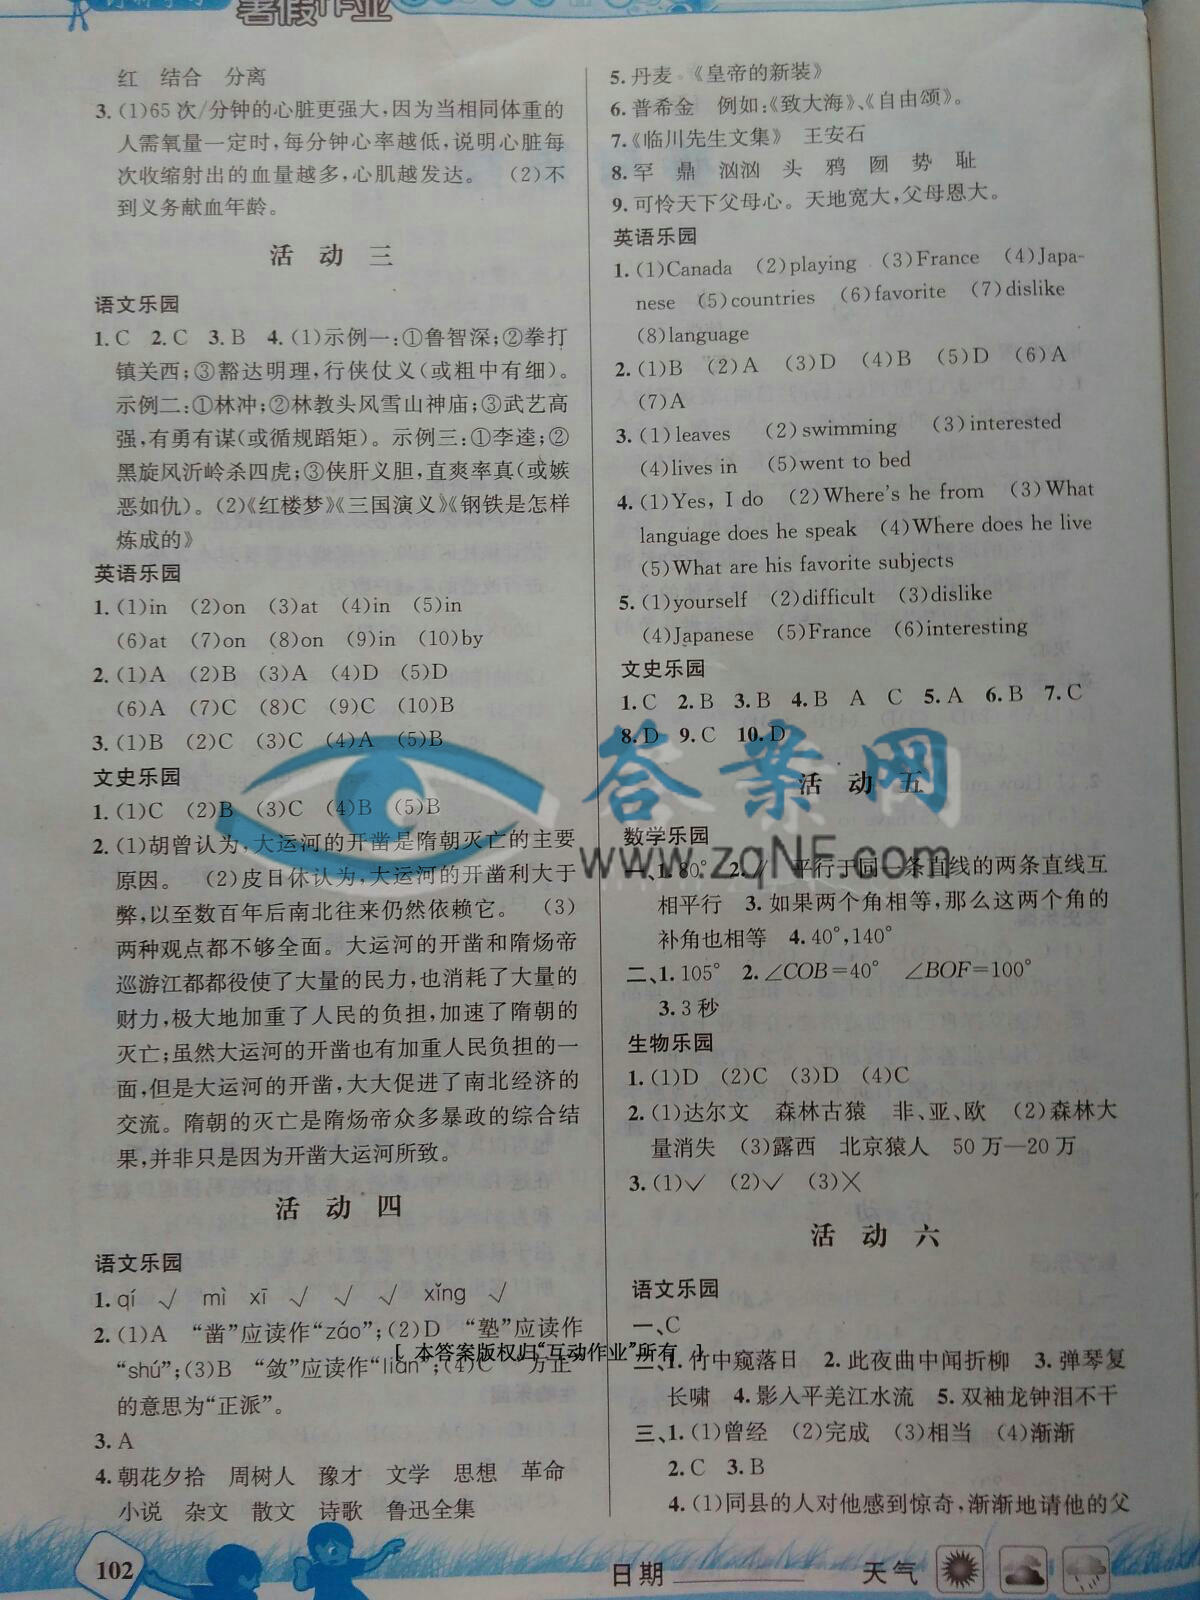 暑假作业
红 结合 分离
3. (1)65 次/分钟的心脏更强大，因为当相同体重的
人需氧量一定时，每分钟心率越低，说明心脏每
次收缩射出的血量越多，心肌越发达。 (2)不
到义务献血年龄。
活 动 三
语文乐园
1. C 2. C 3. B 4. (1)示例一：①鲁智深；②拳打
镇关西；③豁达明理，行侠仗义(或粗中有细)。
示例二：①林冲；②林教头风雪山神庙；③武艺高
强，有勇有谋(或循规蹈矩)。示例三：①李逵；②
黑旋风沂岭杀四虎；③侠肝义胆，直爽率真(或嫉
恶如仇)。(2)《红楼梦》《三国演义》《钢铁是怎样
炼成的》
英语乐园
1. (1)in (2)on (3)at (4)in (5)in
(6)at (7)on (8)on (9)in (10)by
2. (1)A (2)B (3)A (4)D (5)D
(6)A (7)C (8)C (9)C (10)B
3. (1)B (2)C (3)C (4)A (5)B
文史乐园
1. (1)C (2)B (3)C (4)B (5)B
2. (1)胡曾认为，大运河的开凿是隋朝灭亡的主要
原因。 (2)皮日休认为，大运河的开凿利大于
弊，以至数百年后南北往来仍然依赖它。 (3)
两种观点都不够全面。大运河的开凿和隋炀帝
巡游江都都役使了大量的民力，也消耗了大量的
财力，极大地加重了人民的负担，加速了隋朝的
灭亡；虽然大运河的开凿也有加重人民负担的一
面，但是大运河的开凿，大大促进了南北经济的
交流。隋朝的灭亡是隋炀帝众多暴政的综合结
果，并非只是因为开凿大运河所致。
活 动 四
语文乐园
1. qí √ mì xī √ √ √ xǐng √
2. (1)A “凿”应读作“záo”；(2)D “塾”应读作
“shú”；(3)B “敛”应读作“liǎn”；(4)C 方正
的意思为“正派”。
3. A
4. 朝花夕拾 周树人 豫才 文学 思想 革命
小说 杂文 散文 诗歌 鲁迅全集
102
5. 丹麦 《皇帝的新装》
6. 普希金 例如：《致大海》、《自由颂》。
7.《临川先生文集》 王安石
8. 罕 鼎 汹汹 头 鸦 囫 势 耻
9. 可怜天下父母心。天地宽大，父母恩大。
英语乐园
1. (1)Canada (2)playing (3)France (4)Japa-
nese (5)countries (6)favorite (7)dislike
(8)language
2. (1)B (2)A (3)D (4)B (5)D (6)A
(7)A
3. (1)leaves (2)swimming (3)interested
(4)lives in (5)went to bed
4. (1)Yes, I do (2)Where's he from (3)What
language does he speak (4)Where does he live
(5)What are his favorite subjects
5. (1)yourself (2)difficult (3)dislike
(4)Japanese (5)France (6)interesting
文史乐园
1. C 2. B 3. B 4. B A C 5. A 6. B 7. C
8. D 9. C 10. D
活 动 五
数学乐园
一、1. 80° 2. ∥ 平行于同一条直线的两条直线互
相平行 3. 如果两个角相等，那么这两个角的
补角也相等 4. 40°，140°
二、1. 105° 2. ∠COB=40° ∠BOF=100°
3. 3 秒
生物乐园
1. (1)D (2)C (3)D (4)C
2. (1)达尔文 森林古猿 非、亚、欧 (2)森林大
量消失 (3)露西 北京猿人 50 万—20 万
3. (1)√ (2)√ (3)×
活 动 六
语文乐园
一、C
二、1. 竹中窥落日 2. 此夜曲中闻折柳 3. 弹琴复
长啸 4. 影入平羌江水流 5. 双袖龙钟泪不干
三、1. (1)曾经 (2)完成 (3)相当 (4)渐渐
2. C 3. B
4. (1)同县的人对他感到惊奇，渐渐地请他的父
日期 天气
答案网
www.zqNF.com
[ 本答案版权归“互动作业”所有 ]